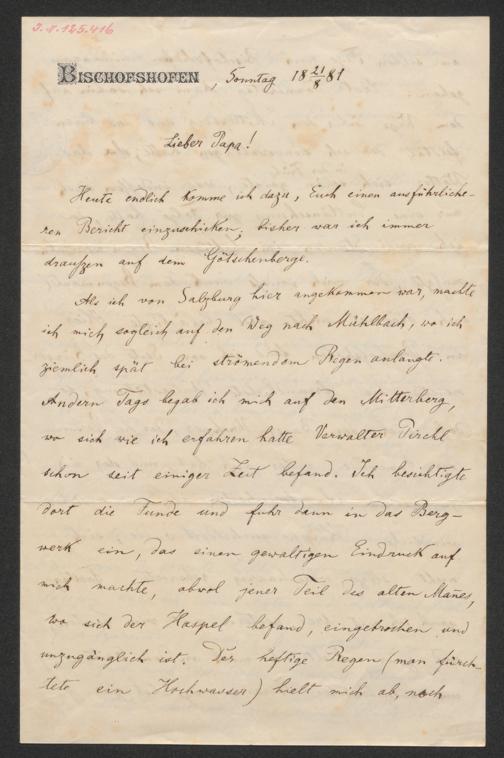 J.N.125.416
BISCHOFSHOFEN, Sonntag 18 21/8 81
Lieber Papa!
Heute endlich komme ich dazu, Euch einen ausführliche-
ren Bericht einzuschicken; bisher war ich immer
draußen auf dem Götschenberge.
Als ich von Salzburg hier angekommen war, machte
ich mich sogleich auf den Weg nach Mühlbach, wo ich
ziemlich spät bei strömendem Regen anlangte.
Andern Tags begab ich mich auf den Mitterberg,
wo sich wie ich erfahren hatte Verwalter Pirchl
schon seit einiger Zeit befand. Ich besichtigte
dort die Funde und fuhr dann in das Berg-
werk ein, das einen gewaltigen Eindruck auf
mich machte, obwol jener Teil des alten Manes,
wo sich der Haspel befand, eingebrochen und
unzugänglich ist. Der heftige Regen (man fürch-
tete ein Hochwasser) hielt mich ab, noch